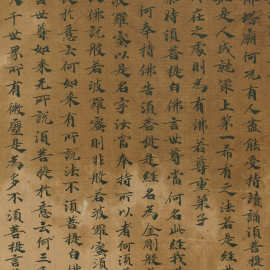 佛塔廟何況有人盡能受持讀誦須菩
知是人成就最上第一希有之法若是經
在之處則為有佛若尊重弟子
須菩提白佛言世尊當何名此經我
何奉持佛告須菩提是經名為金剛般
羅蜜以是名字汝當奉持所以者何須
佛說般若波羅蜜則非般若波羅蜜須
於意云何如來有所說法不須菩提白佛
世尊如來无所說須菩提於意云何三
千世界所有微塵是為多不須菩提言